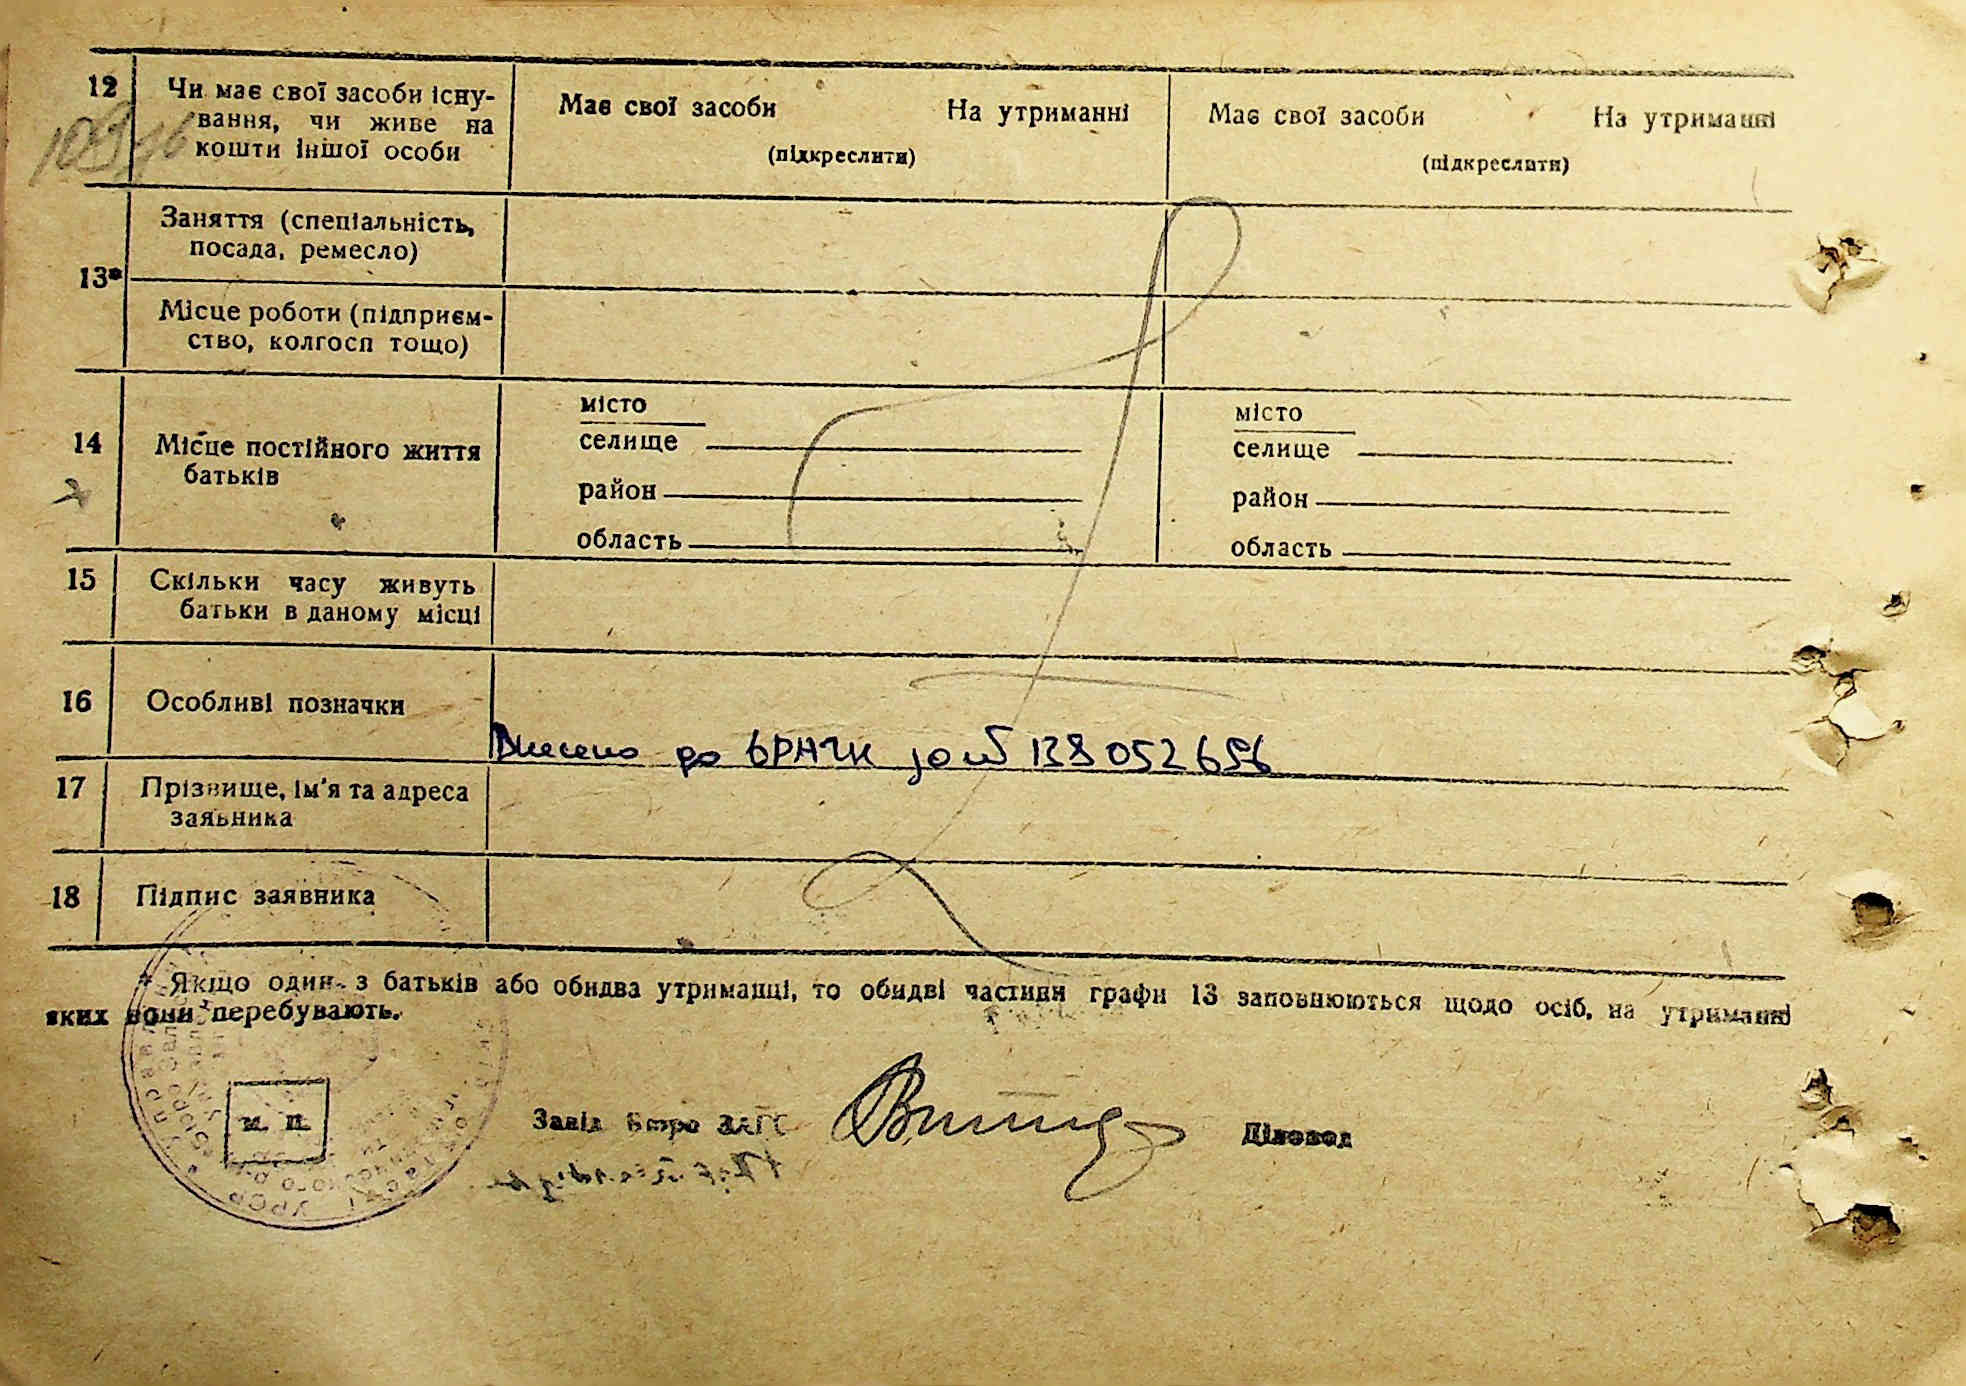 12
Чи має свої засоби існу-
вання, чи живе на
кошти іншої особи
Має свої засоби На утриманні
(підкреслити)
Має свої засоби На утриманні
(підкреслити)
13*
Заняття (спеціальність,
посада, ремесло)
Місце роботи (підприєм-
ство, колгосп тощо)
14
Місце постійного життя
батьків
місто
селище
район
область
місто
селище
район
область
15
Скільки часу живуть
батьки в даному місці
16
Особливі позначки
Внесено до ДРАЦС за № 138052656
17
Прізвище, ім'я та адреса
заявника
18
Підпис заявника
* Якщо один з батьків або обидва утриманці, то обидві частини графи 13 заповнюються щодо осіб, на утриманні
яких вони перебувають.
м. п.
Завід Бюро ЗАГС
Діловод